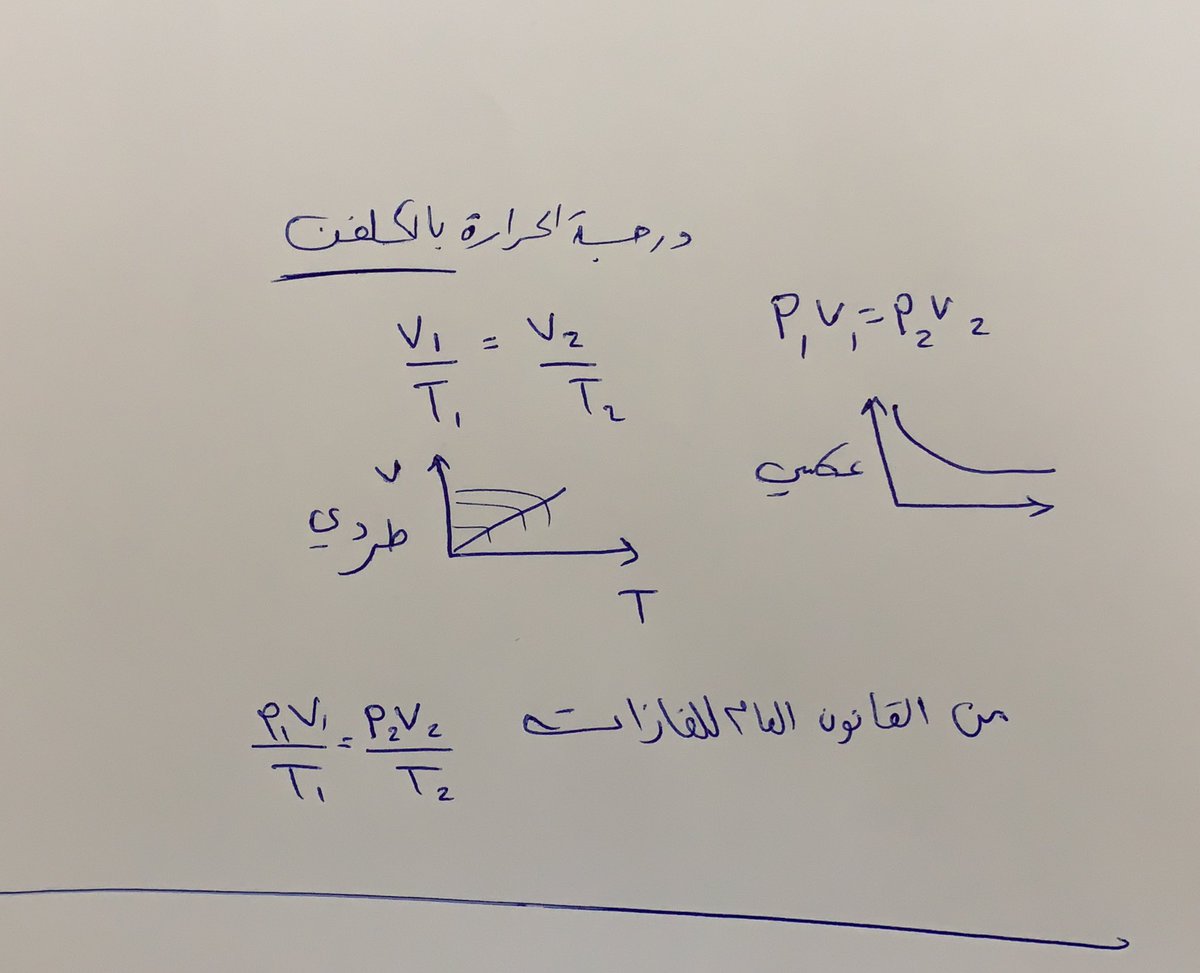 درجة الحرارة بالكلفن
P₁V₁=P₂V₂
V₁/T₁ = V₂/T₂
عكسي
V
طردي
T
من القانون العام للغازات P₁V₁/T₁ = P₂V₂/T₂